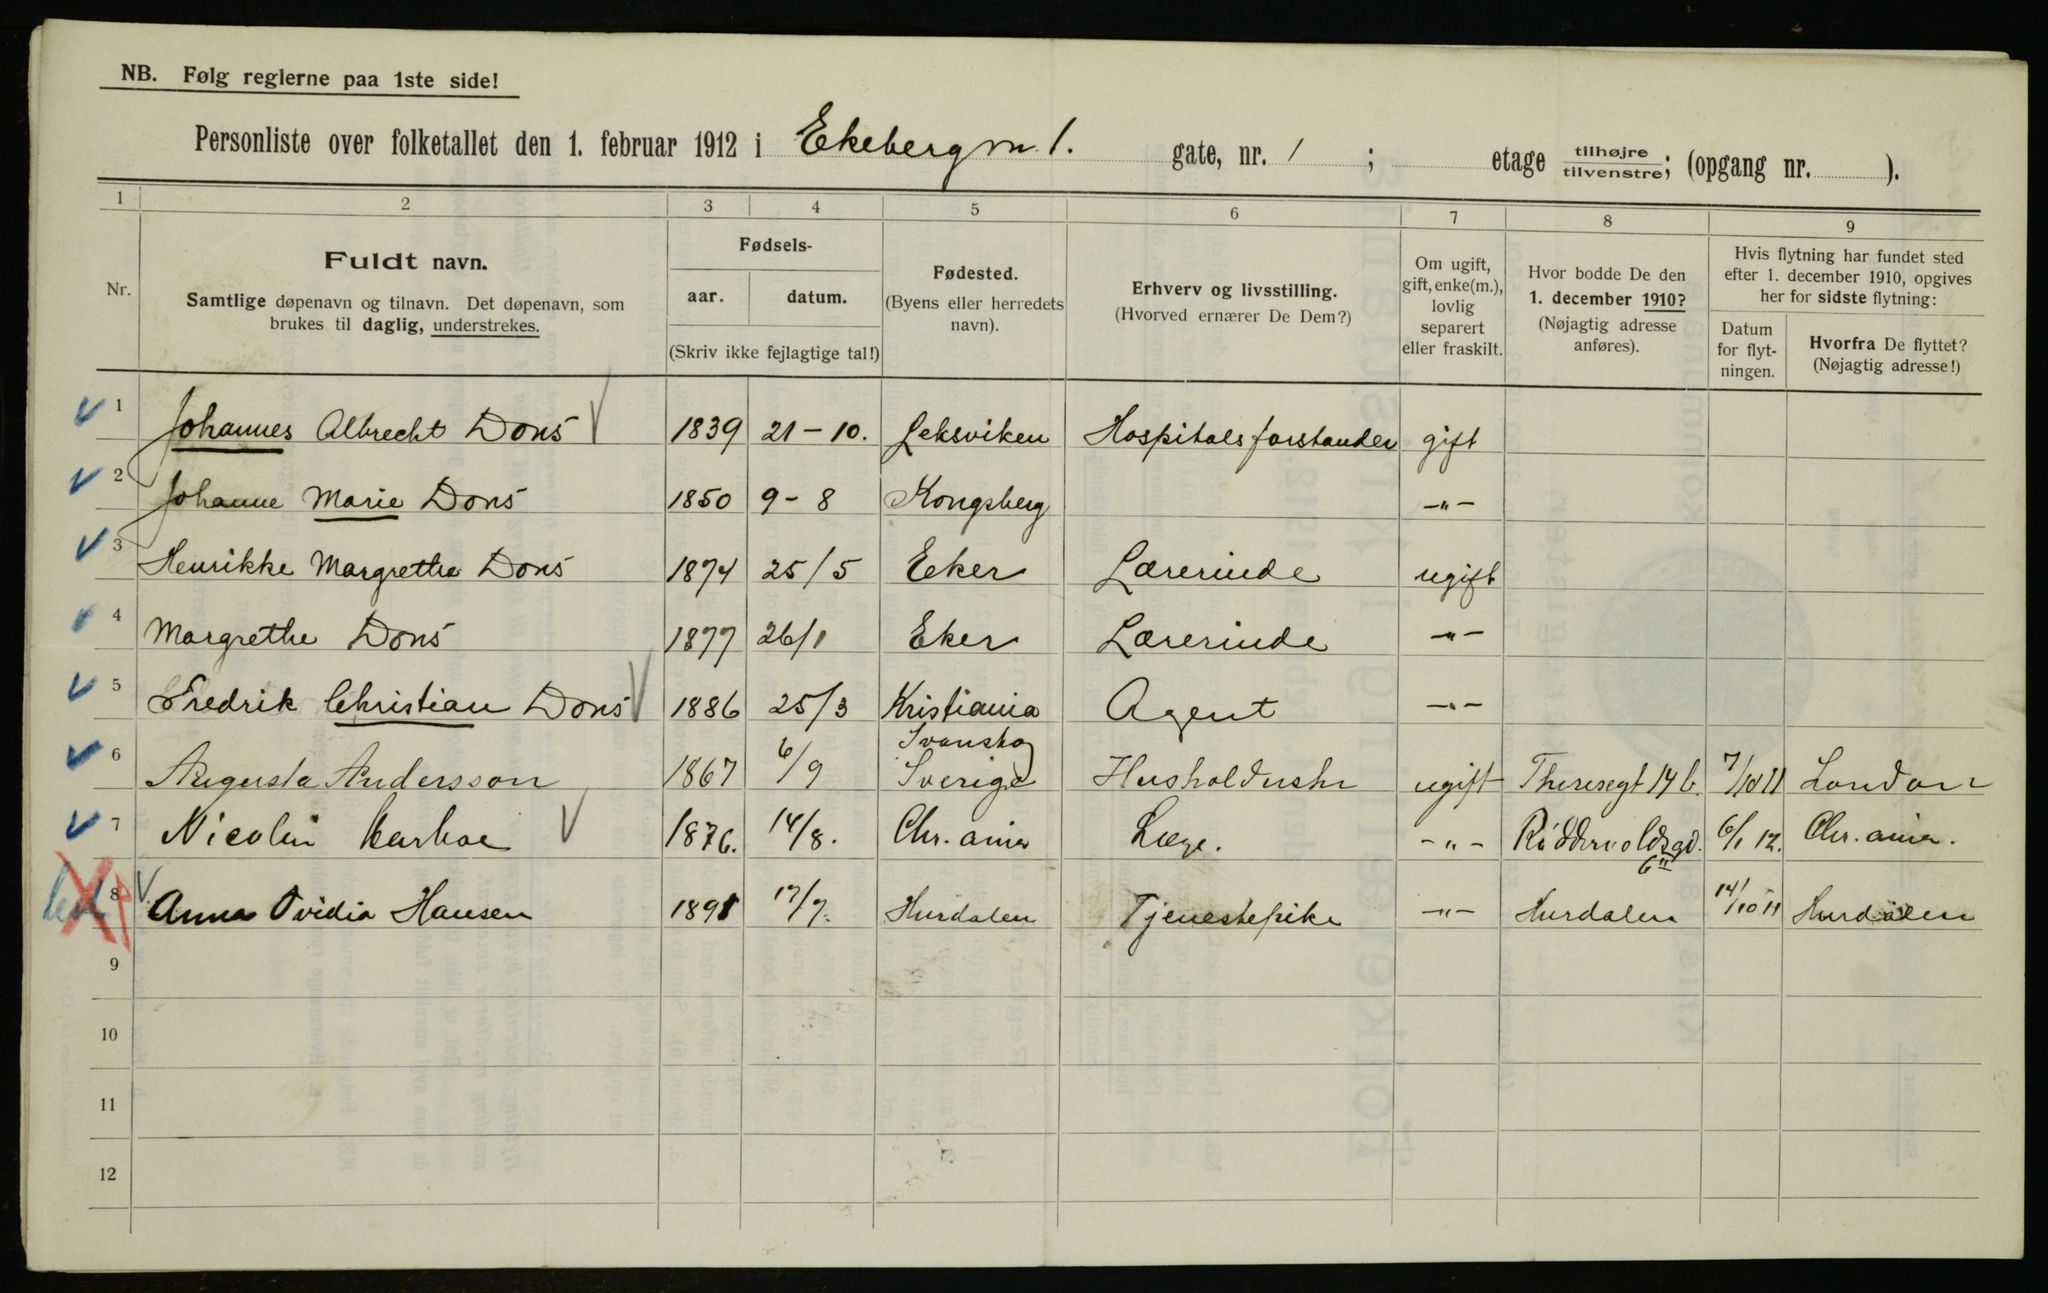 NB. Følg reglerne paa 1ste side!
Personliste over folketallet den 1. februar 1912 i Ekebergvn. 1. gate, nr. 1 ; etage tilhøjre/tilvenstre; (opgang nr. ).
1 2 3 4 5 6 7 8 9
Nr.
Fuldt navn.
Samtlige døpenavn og tilnavn. Det døpenavn, som
brukes til daglig, understrekes.
Fødsels-
aar. datum.
(Skriv ikke fejlagtige tal!)
Fødested.
(Byens eller herredets
navn).
Erhverv og livsstilling.
(Hvorved ernærer De Dem?)
Om ugift,
gift, enke(m.),
lovlig
separert
eller fraskilt.
Hvor bodde De den
1. december 1910?
(Nøjagtig adresse
anføres).
Hvis flytning har fundet sted
efter 1. december 1910, opgives
her for sidste flytning:
Datum
for flyt-
ningen.
Hvorfra De flyttet?
(Nøjagtig adresse!)
1 Johannes Albrecht Dons 1839 21-10. Leksviken Hospitalsforstander gift
2 Johanne Marie Dons 1850 9-8 Kongsberg -"-
3 Henrikke Margrethe Dons 1874 25/5 Eker Lærerinde ugift
4 Margrethe Dons 1877 26/1 Eker Lærerinde -"-
5 Fredrik Christian Dons 1886 25/3 Kristiania Agent -"-
6 Augusta Andersson 1867 6/9 Svanskog Sverige Husholderske ugift Theresegt 14 b. 7/10 11 London
7 Nicolin 1876. 14/8. Chr.ania Læge. -"- Riddervoldsgd. 6 6/1 12. Chr.ania.
8 Anna Ovidia Hansen 1891 17/7. Hurdalen Tjenestepike -"- Hurdalen 14/10 11 Hurdalen
9
10
11
12